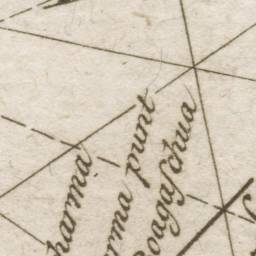 harma
rma punt
oagaſchua